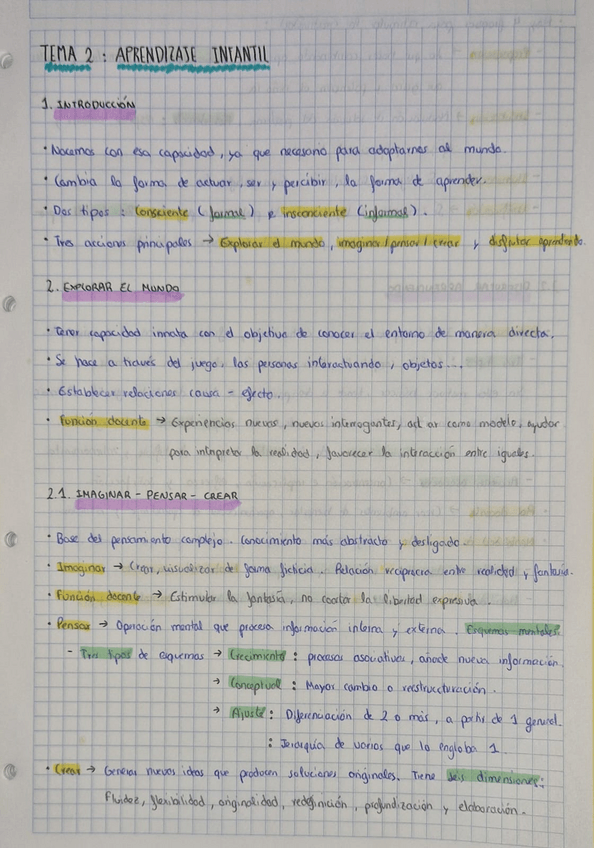 TEMA 2 : APRENDIZAJE INFANTIL
1. INTRODUCCIÓN
• Nacemos con esa capacidad, ya que necesario para adaptarnos al mundo.
• Cambia la forma de actuar, ser y percibir, la forma de aprender.
• Dos tipos : Consciente (formal) e insconciente (informal).
• Tres acciones principales → Explorar el mundo, imaginar/pensar/crear y disfrutar aprendiendo.
2. EXPLORAR EL MUNDO
• Tener capacidad innata con el objetivo de conocer el entorno de manera directa.
• Se hace a través del juego, las personas interactuando, objetos...
• Establecer relaciones causa - efecto.
• Función docente → Experiencias nuevas, nuevos interrogantes, actuar como modelo, ayudar
para interpretar la realidad, favorecer la interacción entre iguales.
2.1. IMAGINAR - PENSAR - CREAR
• Base del pensamiento complejo. Conocimiento más abstracto y desligado.
• Imaginar → Crear, visualizar de forma ficticia. Relación recíproca entre realidad y fantasía.
• Función docente → Estimular la fantasía, no coartar la libertad expresiva.
• Pensar → Operación mental que procesa información interna y externa. Esquemas mentales.
- Tres tipos de esquemas → Crecimiento : procesos asociativos, añade nueva información.
→ Conceptual : Mayor cambio o reestructuración.
→ Ajuste : Diferenciación de 2 o más, a partir de 1 general.
: Jerarquía de varios que lo engloba 1.
• Crear → Generar nuevas ideas que producen soluciones originales. Tiene seis dimensiones:
fluidez, flexibilidad, originalidad, redefinición, profundización y elaboración.